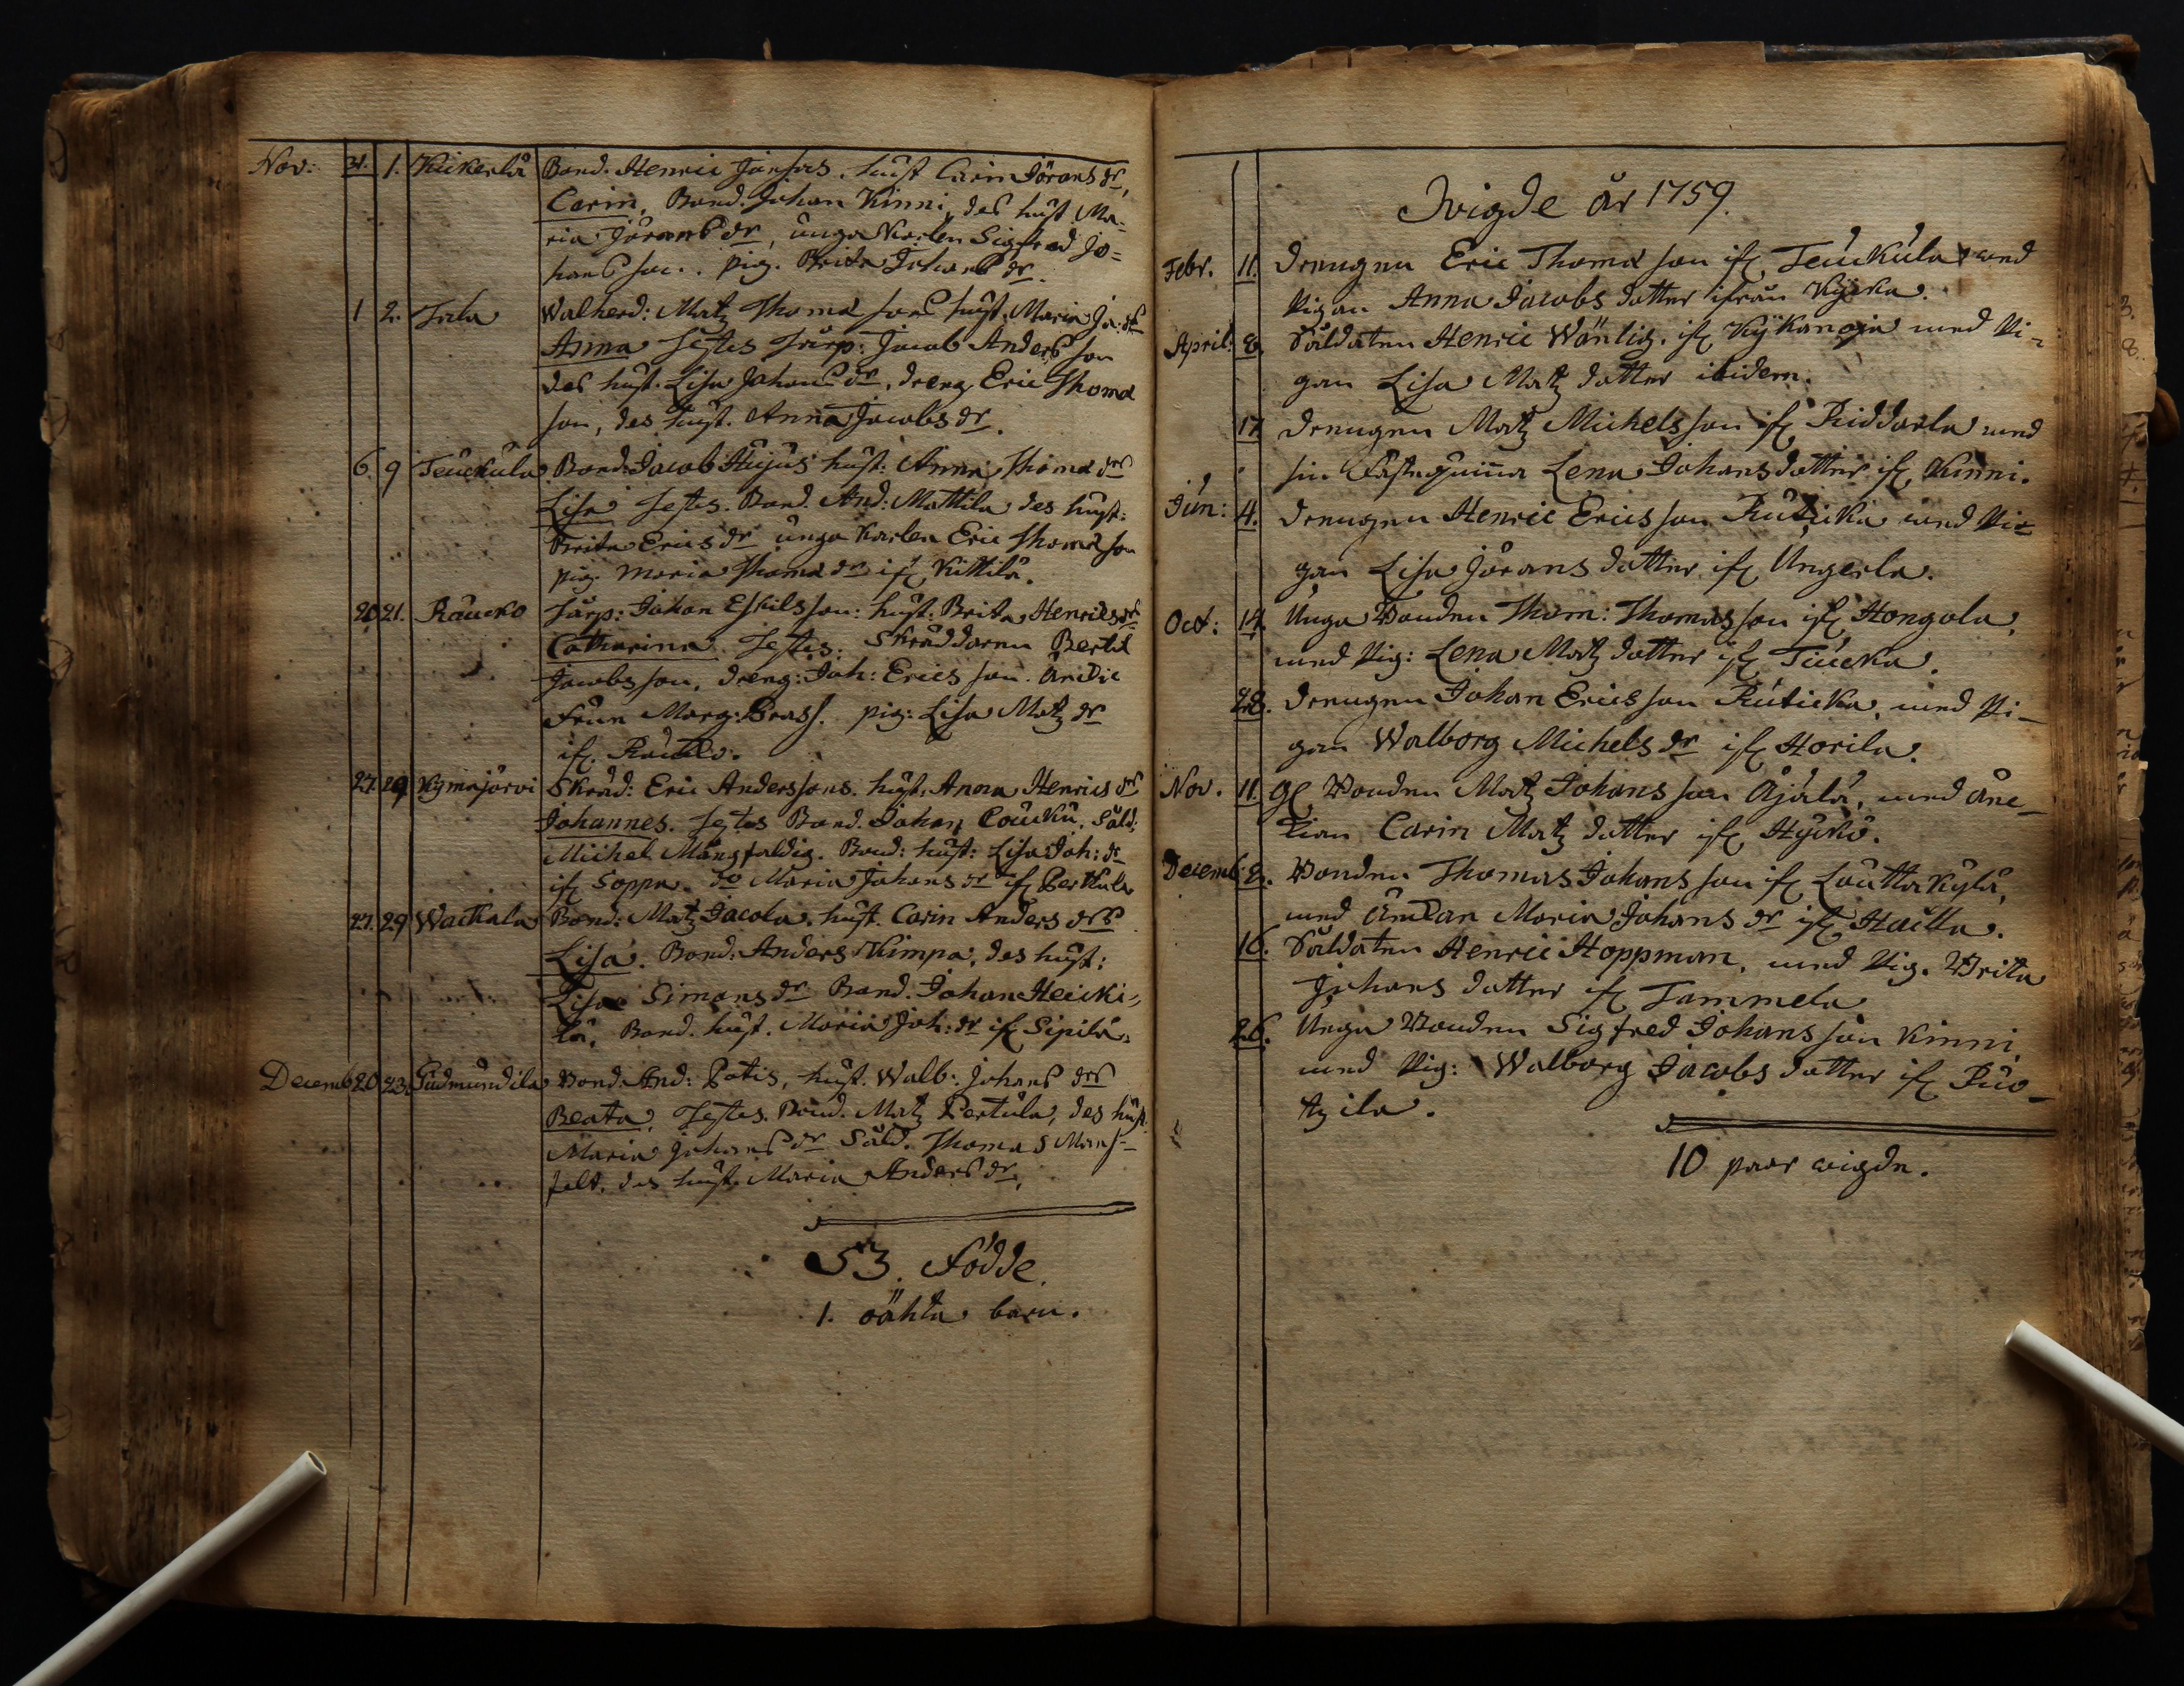 Nov: 31. 1. Kickerla Bond. Henric Jönsons. hust Carin Jörans dr,
Carin, Bond. Johan Kinni, des hust. Ma-
ria Jörans dr, unga Karlen Sigfred Jo=
hans son. pig. Brita Johans dr.
1 2. Tala Walherd: Matz Thomæ sons hust. Maria Ja: dr
Anna Testes Torp: Jacob Anders son
des hust. Lisa Johans dr, dreng Eric Thomæ
son, des hust. Anna Jacobs dr.
6. 9 Teuckula Bond: Jacob Hujus hust: Anna Thomæ drs
Lisa Testes. Bond. And: Mattila des hust:
Brita Erics dr unga Karlen Eric Thomæ son
pig. Maria Thomæ dr if. Kittilä.
20 21. Raucko Torp: Johan Eskils son: hust: Brita Henrics drs
Catharina. Testes: Skräddaren Bertil
Jacobs son, dreng: Joh: Erics son.
Frun Marg: Brass. pig: Lisa Matz dr
if. Raucko.
27. 29 Kymäjärvi Skräd: Eric Anderssons. hust. Anna Henrics drs
Johannes. Testes Bond. Johan Coucku, Sold:
Michel Mångfaldig. Bond: hust: Lisa Joh: dr
if Soppa. do Maria Johans dr if Perthula
27. 29 Wackala Bond: Matz Jacola. hust. Carin Anders drs
Lisa. Bond: Anders Kimpa, des hust:
Lisa Simons dr Bond. Johan Heicki-
lä, Bond. hust. Maria Joh: dr if Sipilä.
Decemb 20 23. Gudmundila Bond. And: Potis, hust. Walb: Johans drs
Beata, Testes. Bond. Matz Pertula, des hust.
Maria Johans dr Sold. Thomas Mans-
felt, des hust. Maria Anders dr.
53. Födde.
1. oähta barn.
Wigde år 1759.
Febr. 11. Drengen Eric Thomæ son if Teuckula med
Pigan Anna Jacobs dotter ifrån Kyrka.
April. 8. Soldaten Henric Wänlig. if Kykänoja med Pi-
gan Lisa Matz dotter ibidem.
17 Drengen Matz Michels son if Riddarla med
sin Fästequinna Lena Johans dotter if Kinni.
Jun: 4. Drengen Henric Erics son Ruticka med Pi-
gan Lisa Jörans dotter if Ungerla.
Oct: 14. Unga Bonden Thom: Thomas son if Hongola,
med Pig: Lena Matz dotter if Tiucka.
28. Drengen Johan Erics son Ruticka, med Pi-
gan Walborg Michels dr if Horila.
Nov. 11. Gl Bonden Matz Johans son Äjälä, med änc-
kian Carin Matz dotter if Hyrkö.
Decemb 2. Bonden Thomas Johans son if Louttakylä,
med änckan Maria Johans dr if Hacilla.
16. Soldaten Henric Hoppman, med Pig. Brita
Johans dotter if Tammela
26. Unga Bonden Sigfred Johans son Kinni
med Pig: Walborg Jacobs dotter if Ruo-
tzila.
10 paar wigde.